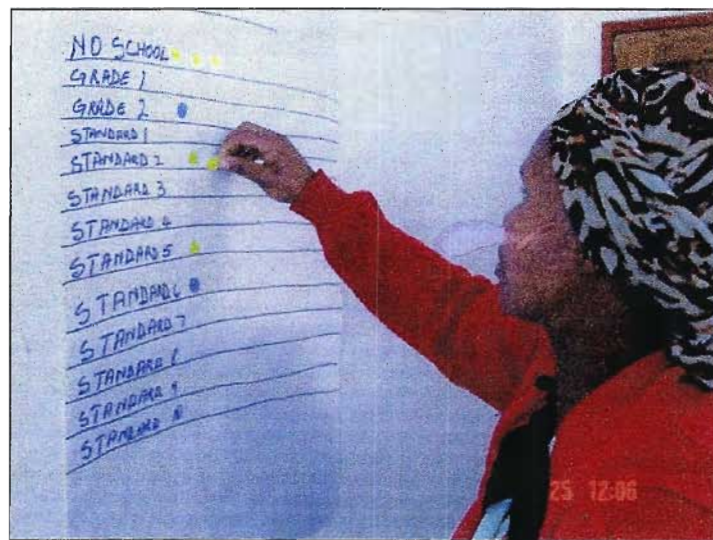 NO SCHOOL
GRADE 1
GRADE 2
STANDARD 1
STANDARD 2
STANDARD 3
STANDARD 4
STANDARD 5
STANDARD 6
STANDARD 7
STANDARD 8
STANDARD 9
STANDARD
25 12:06